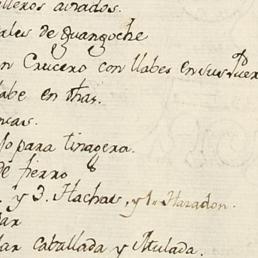 lleros aviados.
ales de guangoche
on Crucero con llabes en sus Puer
labe en thas.
ncas.
lo para tinagera.
de fierro
y 3. Hachas, y 1. Hazadon.
lar
lar caballada y Mulada.